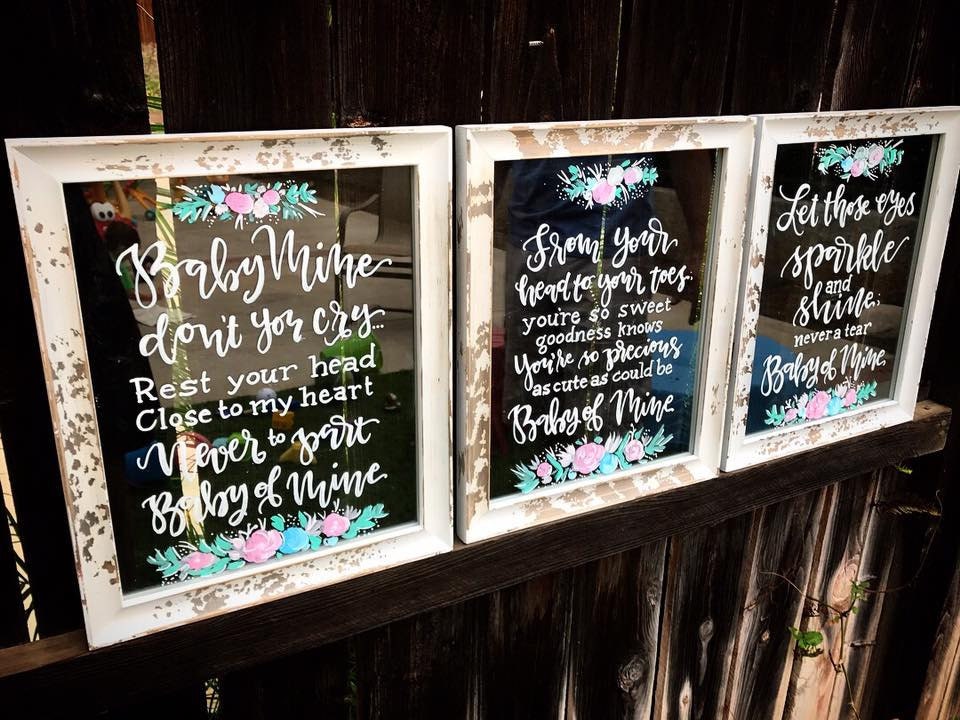 Baby Mine
don't you cry...
Rest your head
Close to my heart
Never to part
Baby of Mine.
From your
head to your toes.
you're so sweet
goodness knows
You're so precious
as cute as could be
Baby of Mine
Let those eyes
sparkle
and
shine,
never a tear
Baby of Mine.